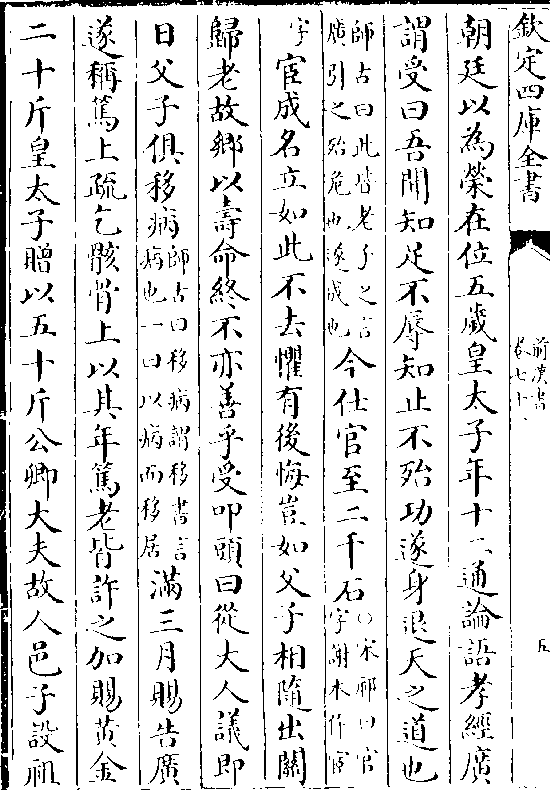 欽定四庫全書
前漢書
卷七十一
五
朝廷以為榮在位五歲皇太子年十二通論語孝經廣
謂受曰吾聞知足不辱知止不殆功遂身退天之道也
師古曰此皆老子之言
廣引之殆危也遂成也
今仕官至二千石
○宋祁曰官
字謝本作宦
字
宦成名立如此不去懼有後悔豈如父子相隨出關
歸老故鄉以壽命終不亦善乎受叩頭曰從大人議即
日父子俱移病
師古曰移病謂移書言
病也一曰以病而移居
滿三月賜告廣
遂稱篤上疏乞骸骨上以其年篤老皆許之加賜黃金
二十斤皇太子贈以五十斤公卿大夫故人邑子設祖